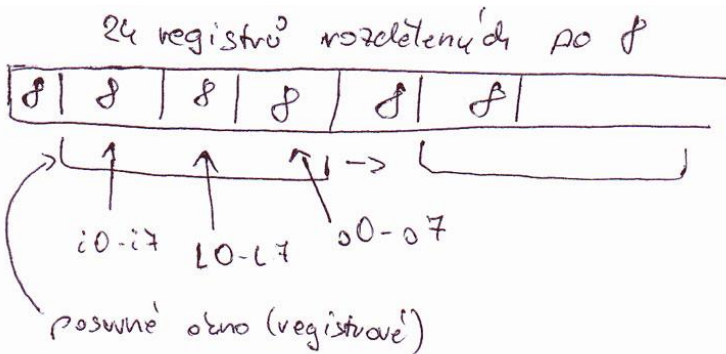 24 registrů rozdělených po 8
8 8 8 8 8 8
i0-i7 L0-L7 o0-o7
posuvné okno (registrové)